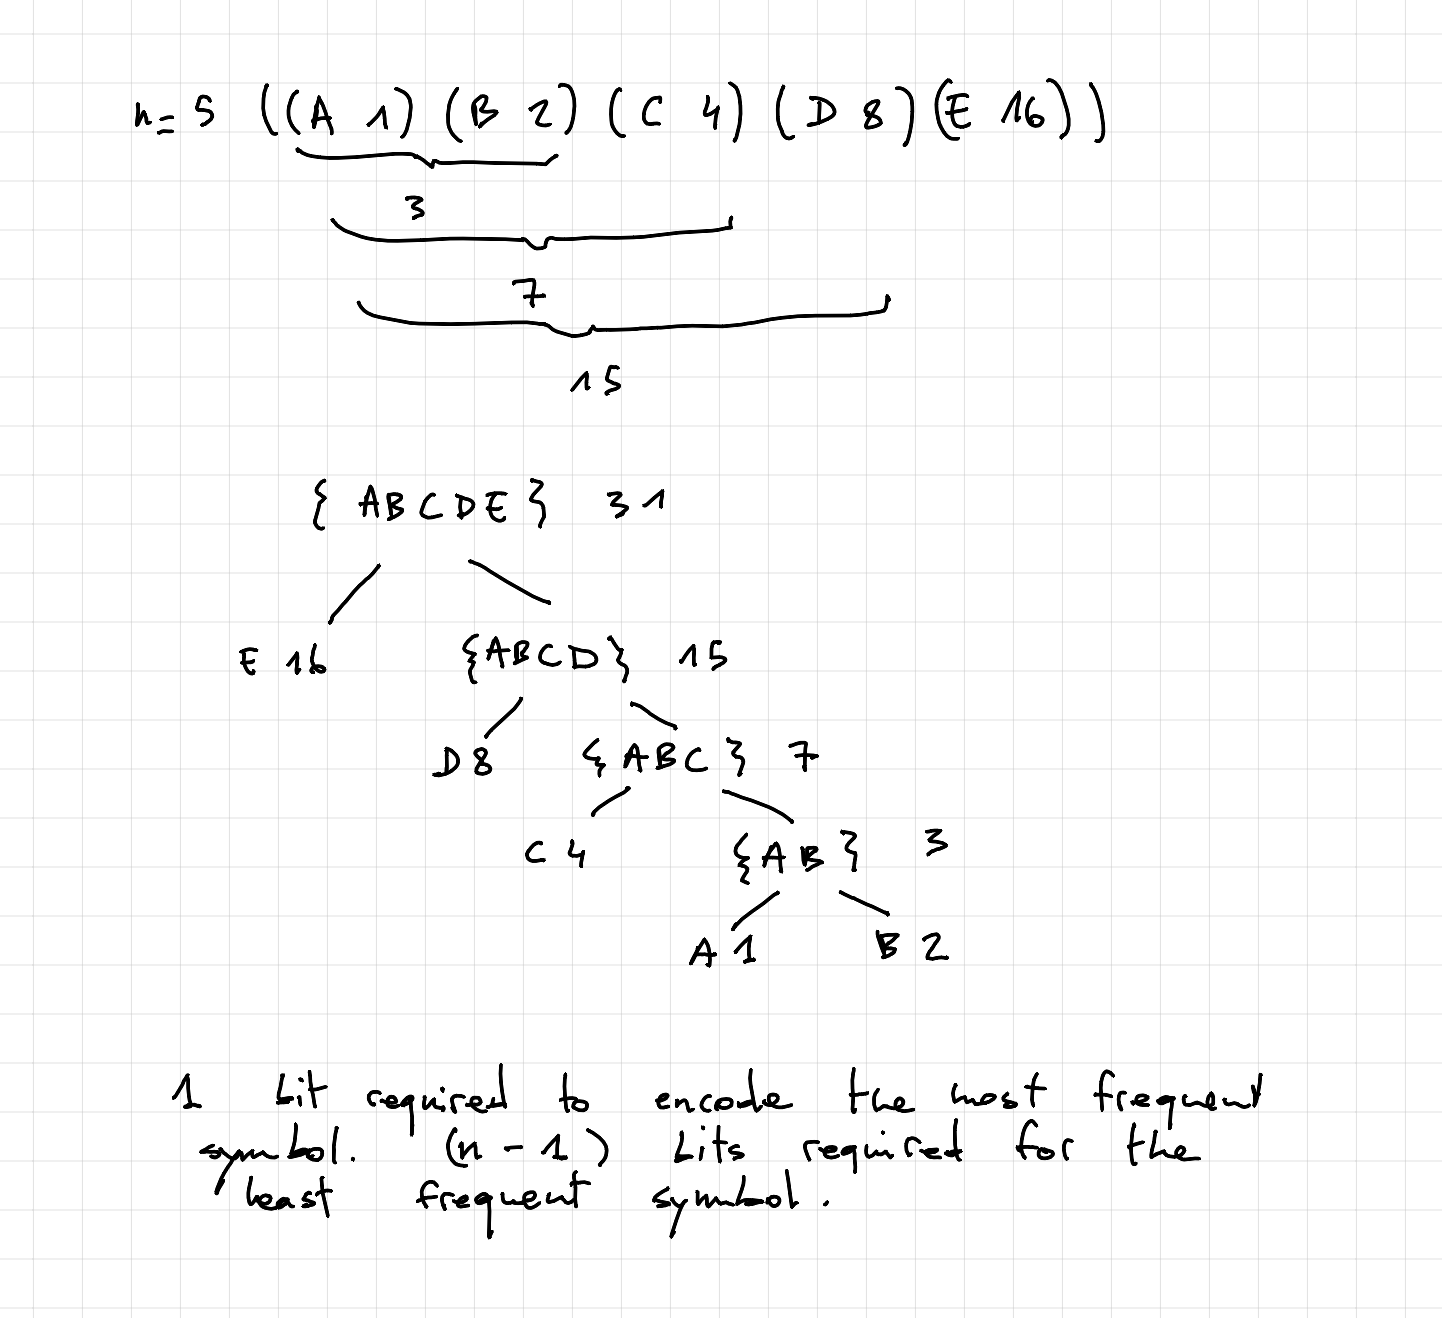 n=5 ((A 1) (B 2) (C 4) (D 8) (E 16))
3
7
15
{ABCDE} 31
E 16 {ABCD} 15
D 8 {ABC} 7
C 4 {AB} 3
A 1 B 2
1 bit required to encode the most frequent
symbol. (n-1) bits required for the
least frequent symbol.